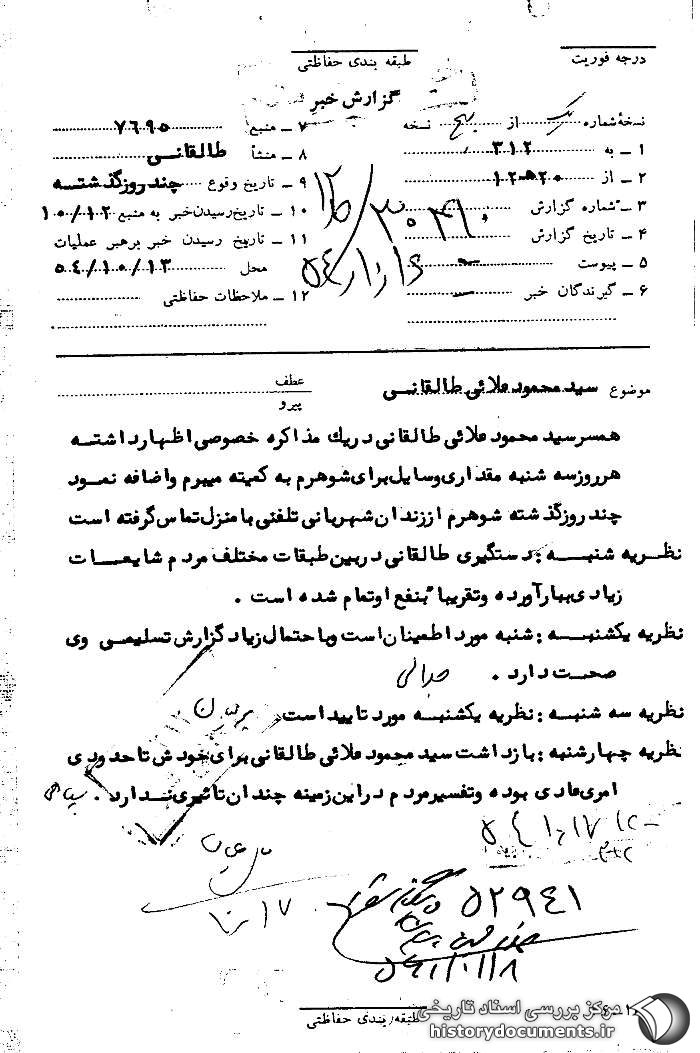 درجه فوریت
طبقه بندی حفاظتی
گزارش خبر
نسخهٔ شماره یک از پنج نسخه
۱ ـ به ۳۱۲
۲ ـ از ۲۰ه۱۲
۳ ـ شماره گزارش
۴ ـ تاریخ گزارش
۵ ـ پیوست
۶ ـ گیرندگان خبر
۷ ـ منبع ۷۶۹۵
۸ ـ منشأ طالقانی
۹ ـ تاریخ وقوع چند روز گذشته
۱۰ ـ تاریخ رسیدن خبر به منبع ۱۰/۱۲
۱۱ ـ تاریخ رسیدن خبر برهبر عملیات
محل ۵۴/۱۰/۱۳
۱۲ ـ ملاحظات حفاظتی
موضوع سید محمود علائی طالقانی
عطف
پیرو
همسر سید محمود علائی طالقانی در یک مذاکره خصوصی اظهار داشته
هر روز سه شنبه مقداری وسایل برای شوهرم به کمیته میبرم و اضافه نمود
چند روز گذشته شوهرم از زندان شهربانی تلفنی با منزل تماس گرفته است
نظریه شنبه : دستگیری طالقانی در بین طبقات مختلف مردم شایعات
زیادی ببار آورده و تقریبا" بنفع او تمام شده است .
نظریه یکشنبه : شنبه مورد اطمینان است و با احتمال زیاد گزارش تسلیمی وی
صحت دارد .
نظریه سه شنبه : نظریه یکشنبه مورد تایید است.
نظریه چهارشنبه : بازداشت سید محمود علائی طالقانی برای خودش تا حدودی
امری عادی بوده و تفسیر مردم در این زمینه چندان تاثیری ندارد .
۵۴/۱۰/۱۷
۱۰/۱۷
۵۲۹۴۱
۵۴/۱۰/۱۸
طبقه بندی حفاظتی
مرکز بررسی اسناد تاریخی
historydocuments.ir